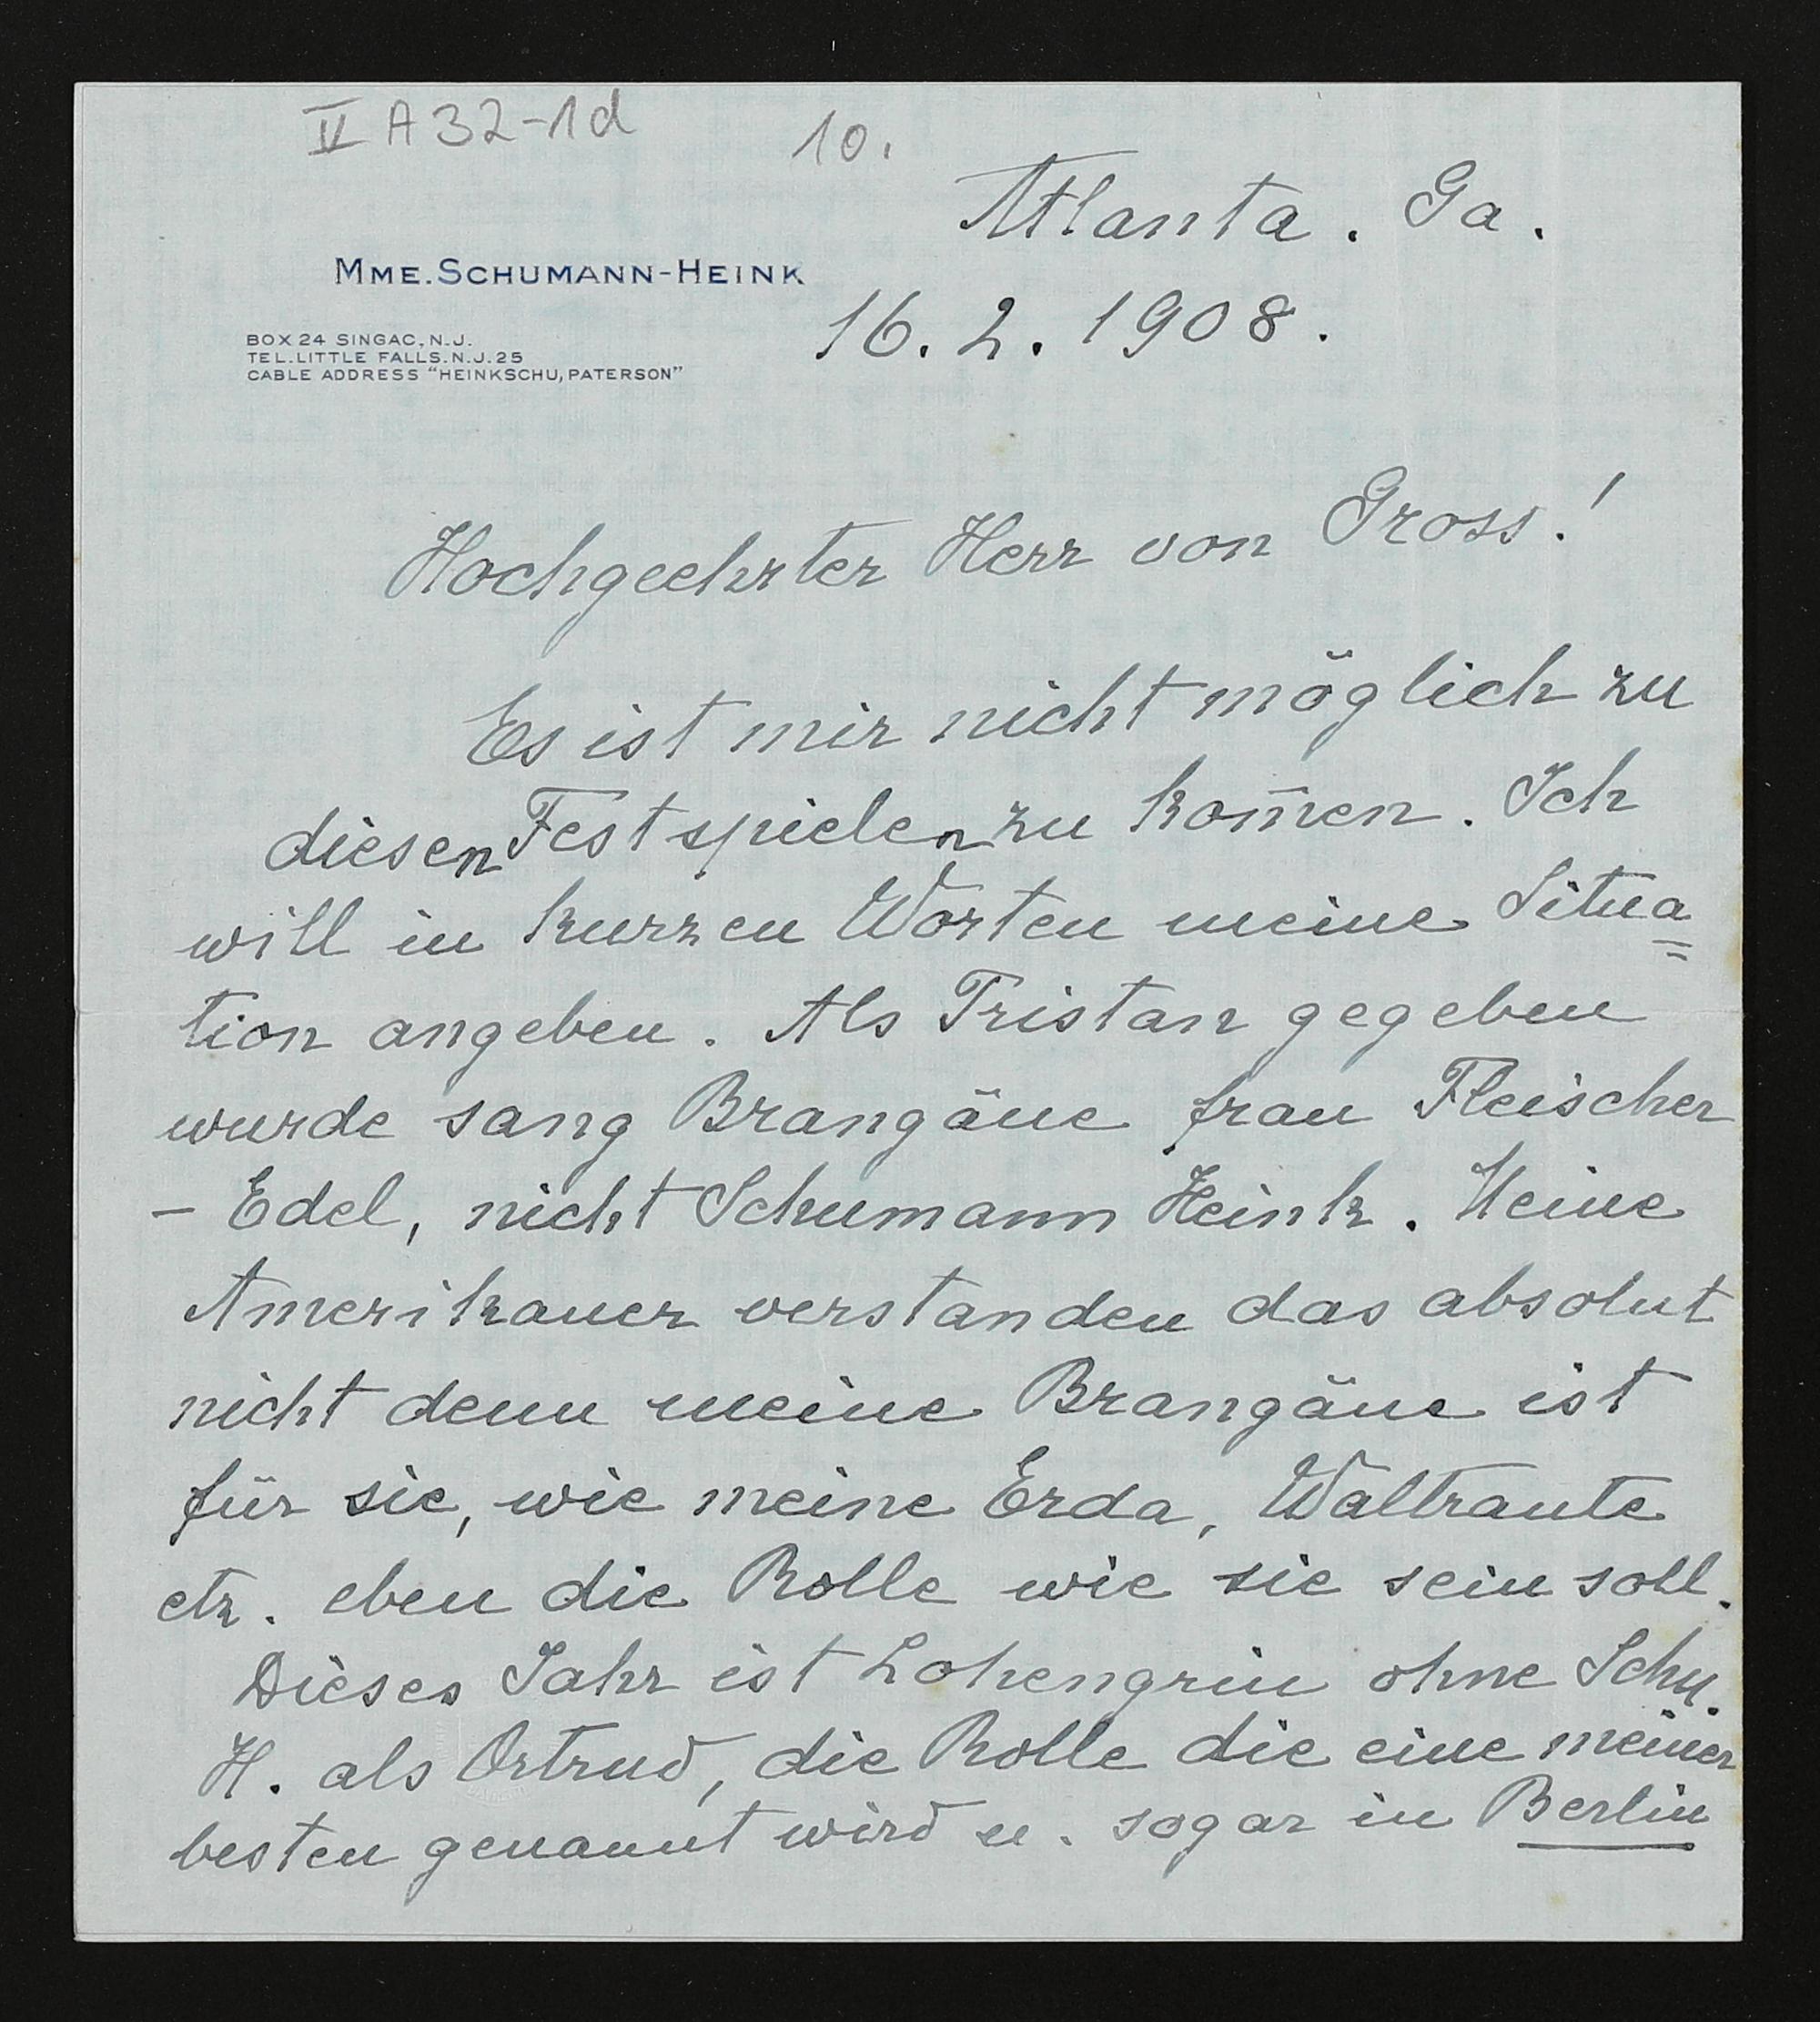 IV A 32-1d 10.
Atlanta. Ga.
MME. SCHUMANN-HEINK
16. 2. 1908.
BOX 24 SINGAC, N.J.
TEL. LITTLE FALLS. N.J. 25
CABLE ADDRESS "HEINKSCHU, PATERSON"
Hochgeehrter Herr von Gross!
Es ist mir nicht möglich zu
diesen Festspielen zu kom̄en. Ich
will in kurzen Worten meine Situa=
tion angeben. Als Tristan gegeben
wurde sang Brangäne frau Fleischer
- Edel, nicht Schumann Heink. Meine
Amerikaner verstanden das absolut
nicht denn meine Brangäne ist
für sie, wie meine Erda, Waltraute
etz. eben die Rolle wie sie sein soll.
Dieses Jahr ist Lohengrin ohne Schu.
H. als Ortrud, die Rolle die eine meiner
besten genannt wird u. sogar in Berlin